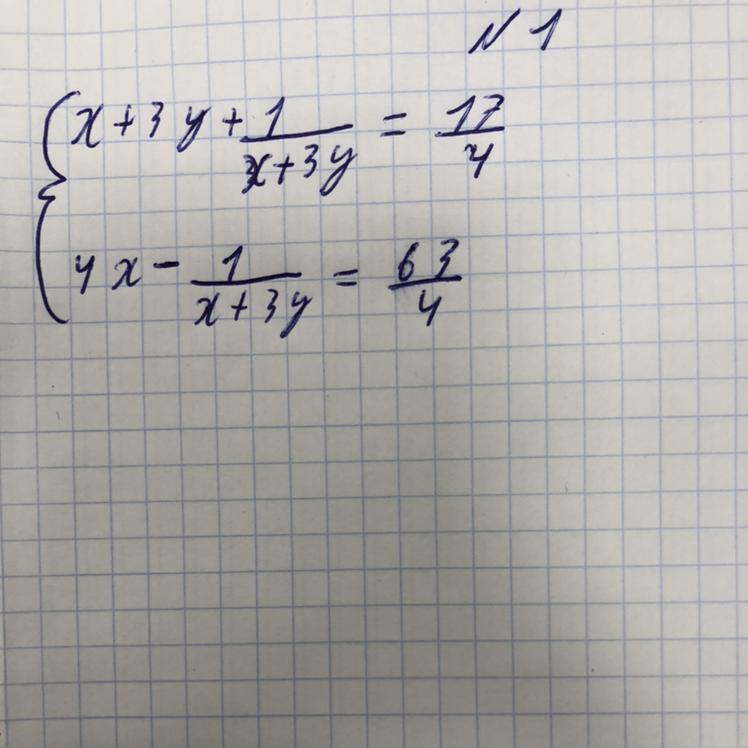 N 1
{ x + 3y + 1/(x+3y) = 17/4
4x - 1/(x+3y) = 63/4